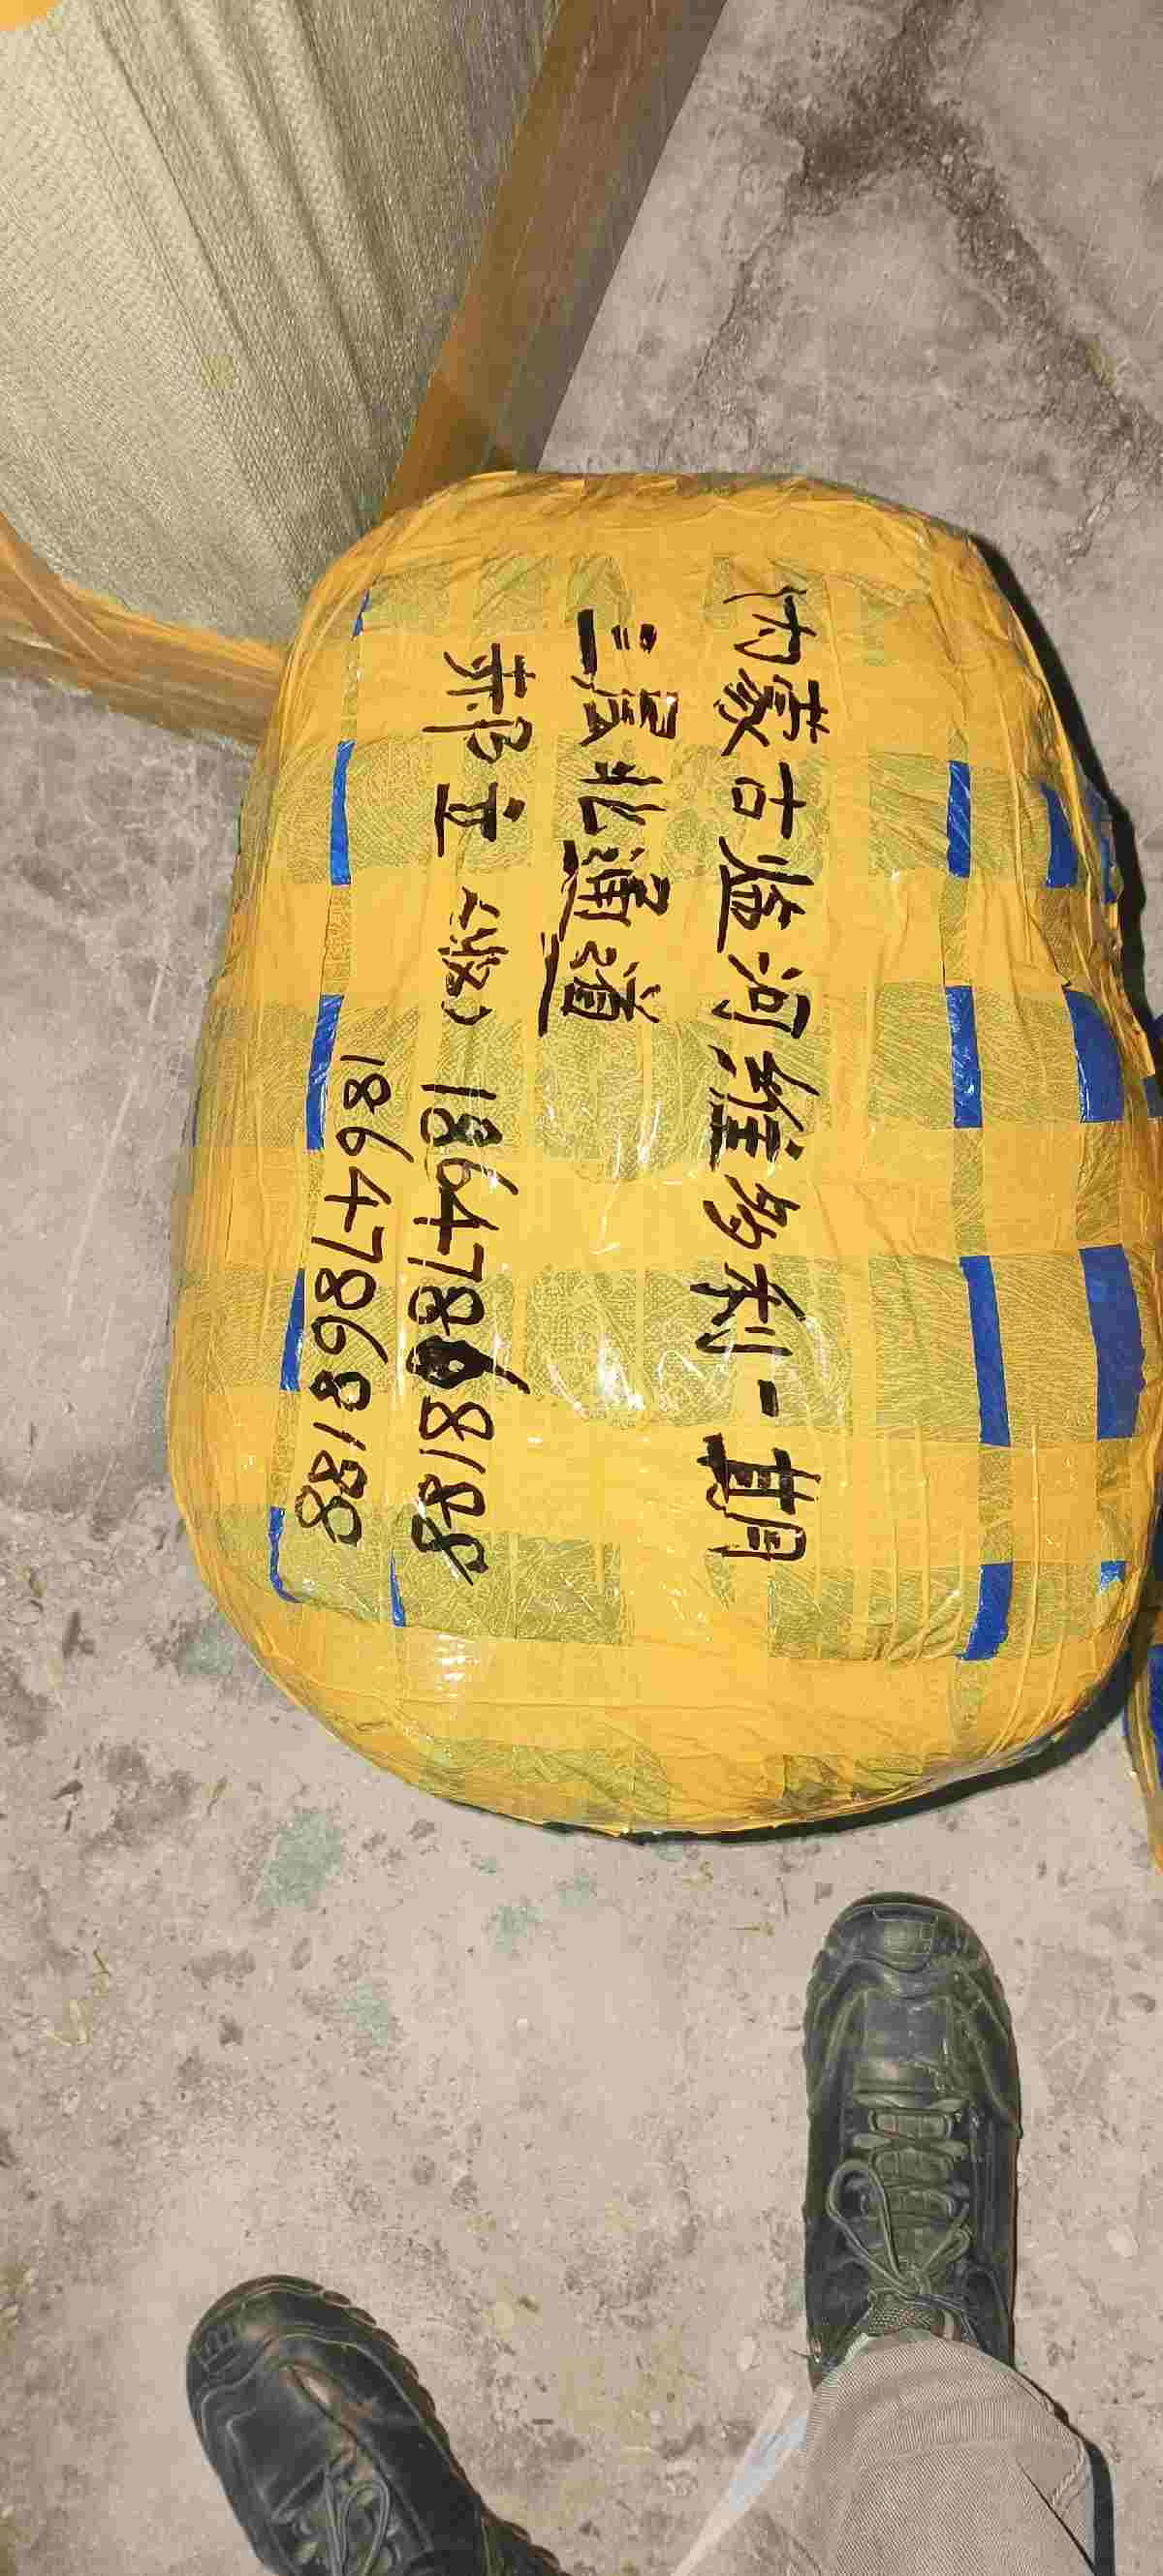 内蒙古临河维多利一期
二层北通道
郝立 (收) 18647868188
18647868188